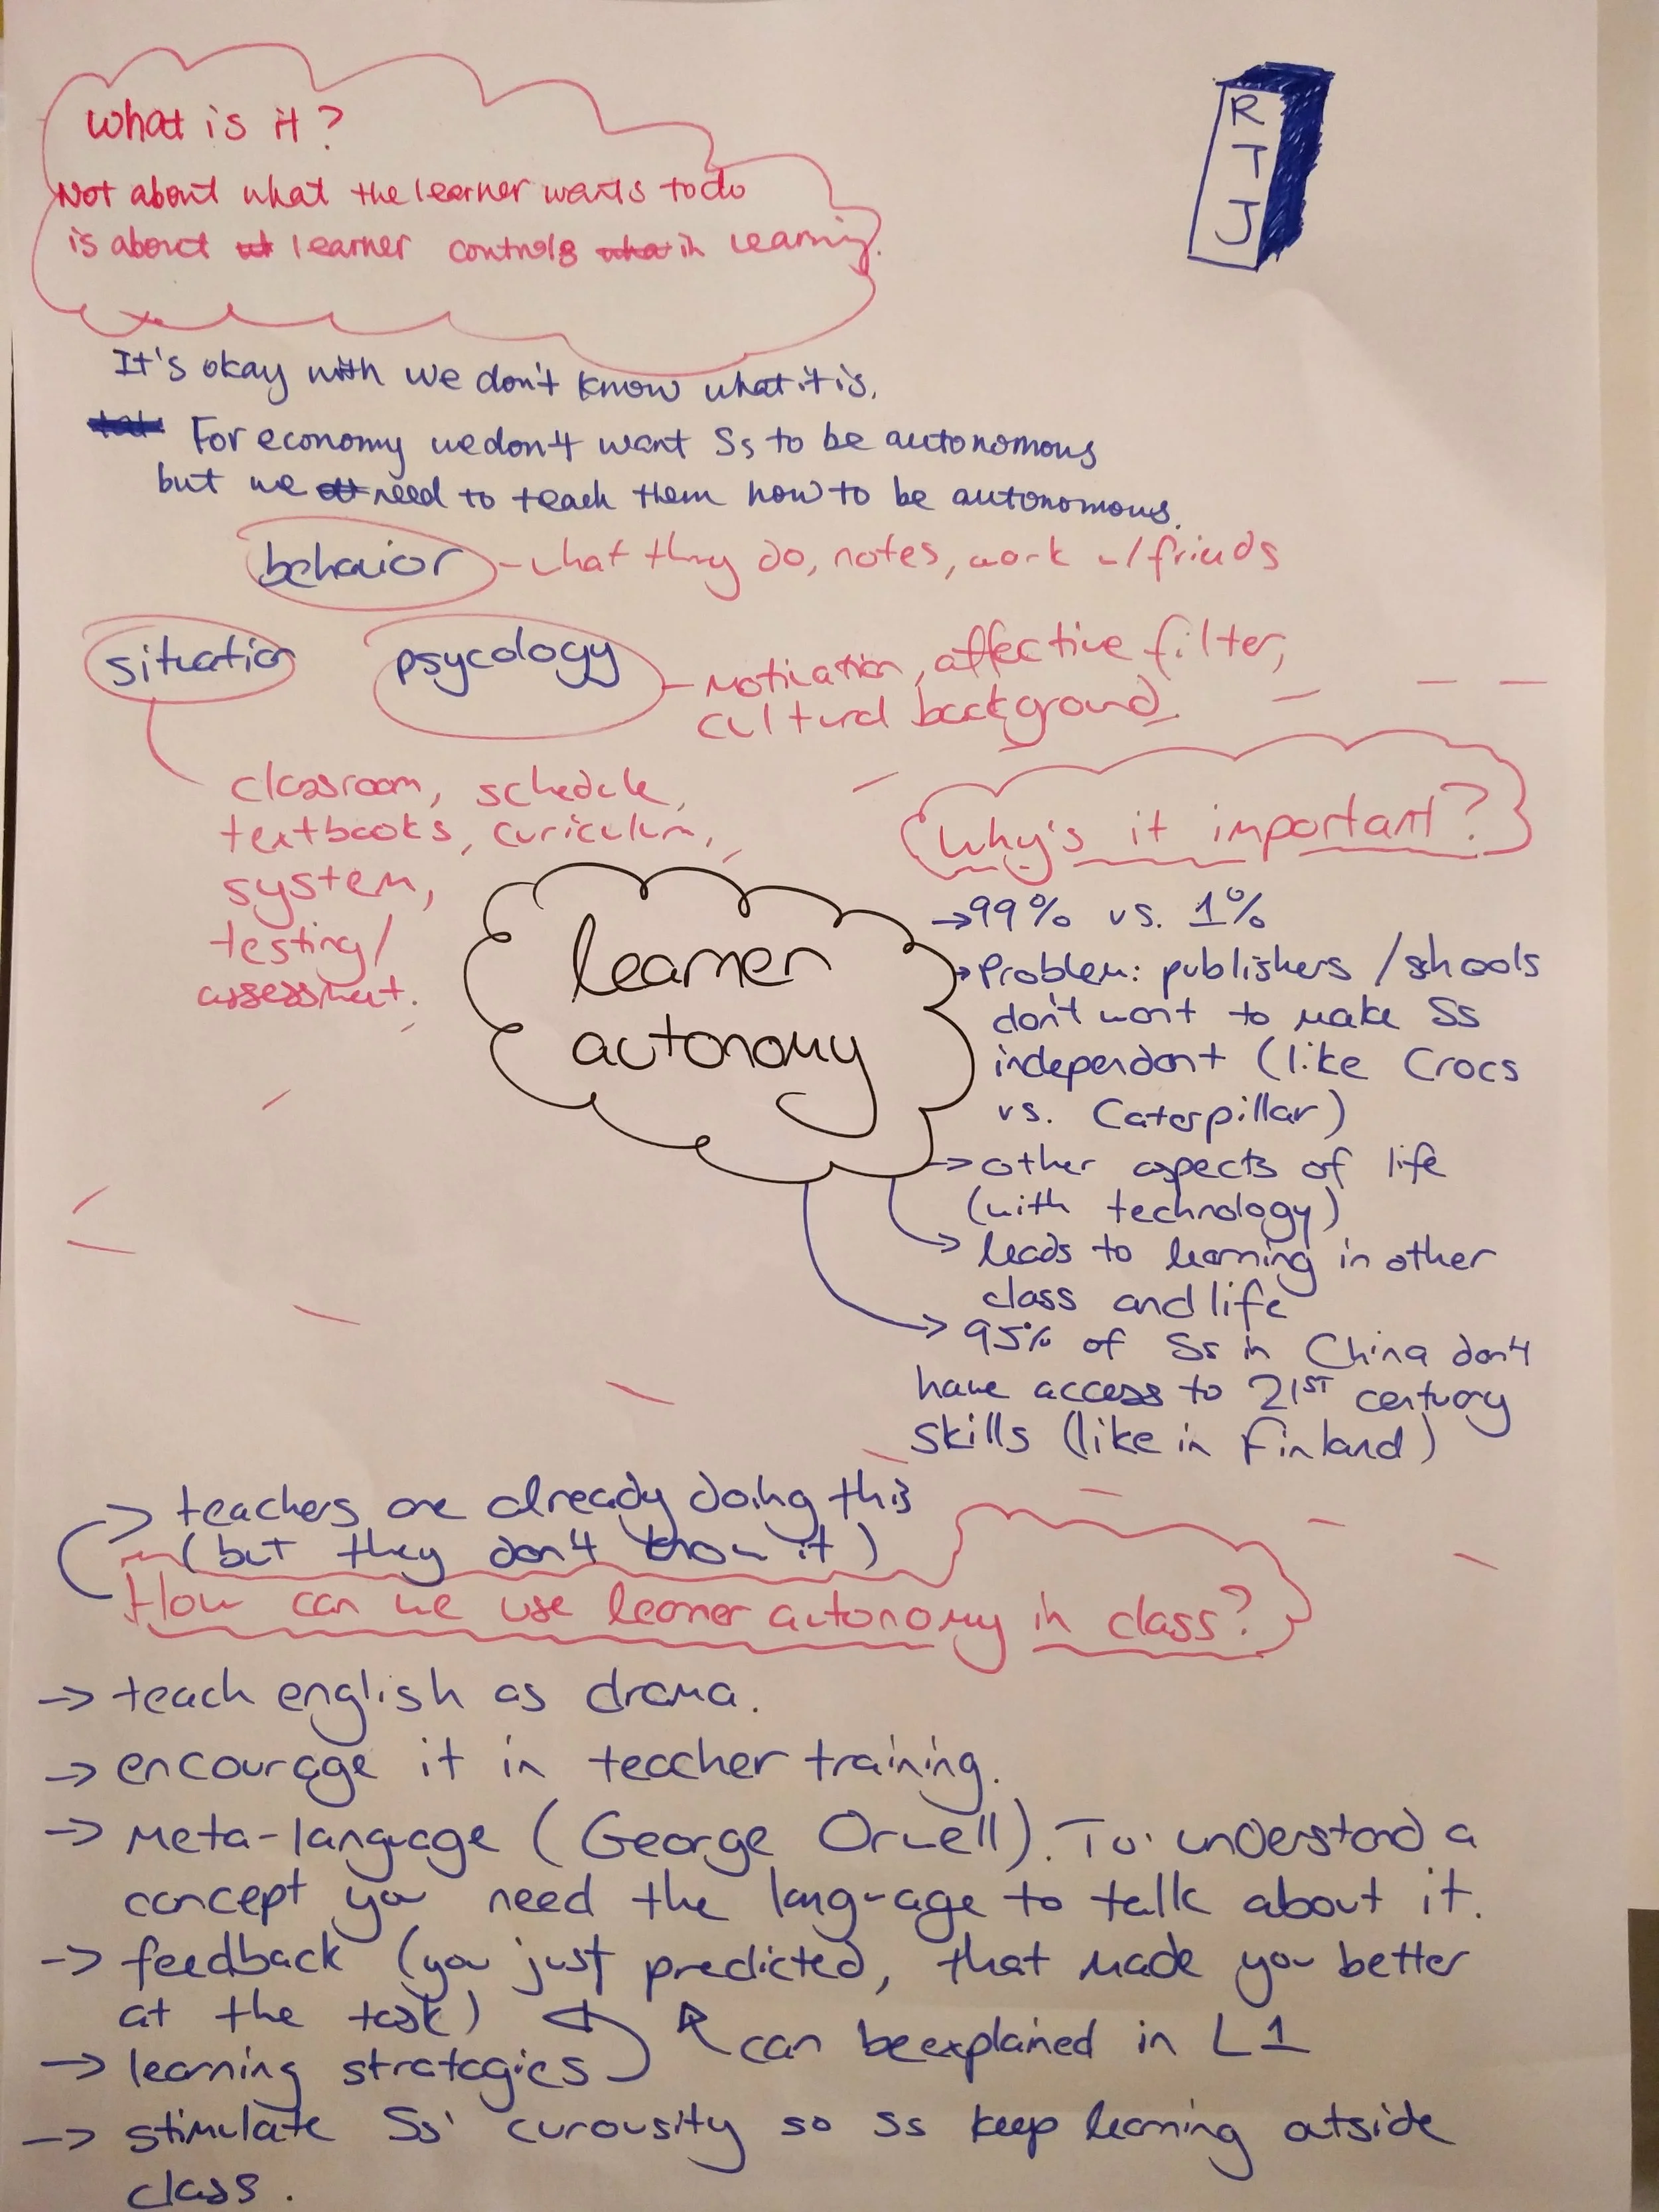 What is it?
Not about what the learner wants to do
is about learner controls in learning.
R
T
J
It's okay with we don't know what it is.
For economy we don't want Ss to be autonomous
but we need to teach them how to be autonomous.
behavior - what they do, notes, work w/ friends
situation
psycology - motivation, affective filter,
cultural background.
classroom, schedule,
textbooks, curiculum,
system,
testing/
assessment.
Why's it important?
→ 99% vs. 1%
→ Problem: publishers / schools
don't want to make Ss
independant (like Crocs
vs. Caterpillar)
→ other aspects of life
(with technology)
→ leads to learning in other
class and life
→ 95% of Ss in China don't
have access to 21ST century
skills (like in Finland)
learner
autonomy
→ teachers are already doing this
(but they don't know it)
How can we use learner autonomy in class?
→ teach english as drama.
→ encourage it in teacher training.
→ Meta-language (George Orwell). To understand a
concept you need the language to talk about it.
→ feedback (you just predicted, that made you better
at the task)
can be explained in L1
→ learning strategies
→ stimulate Ss' curousity so Ss keep learning outside
class.